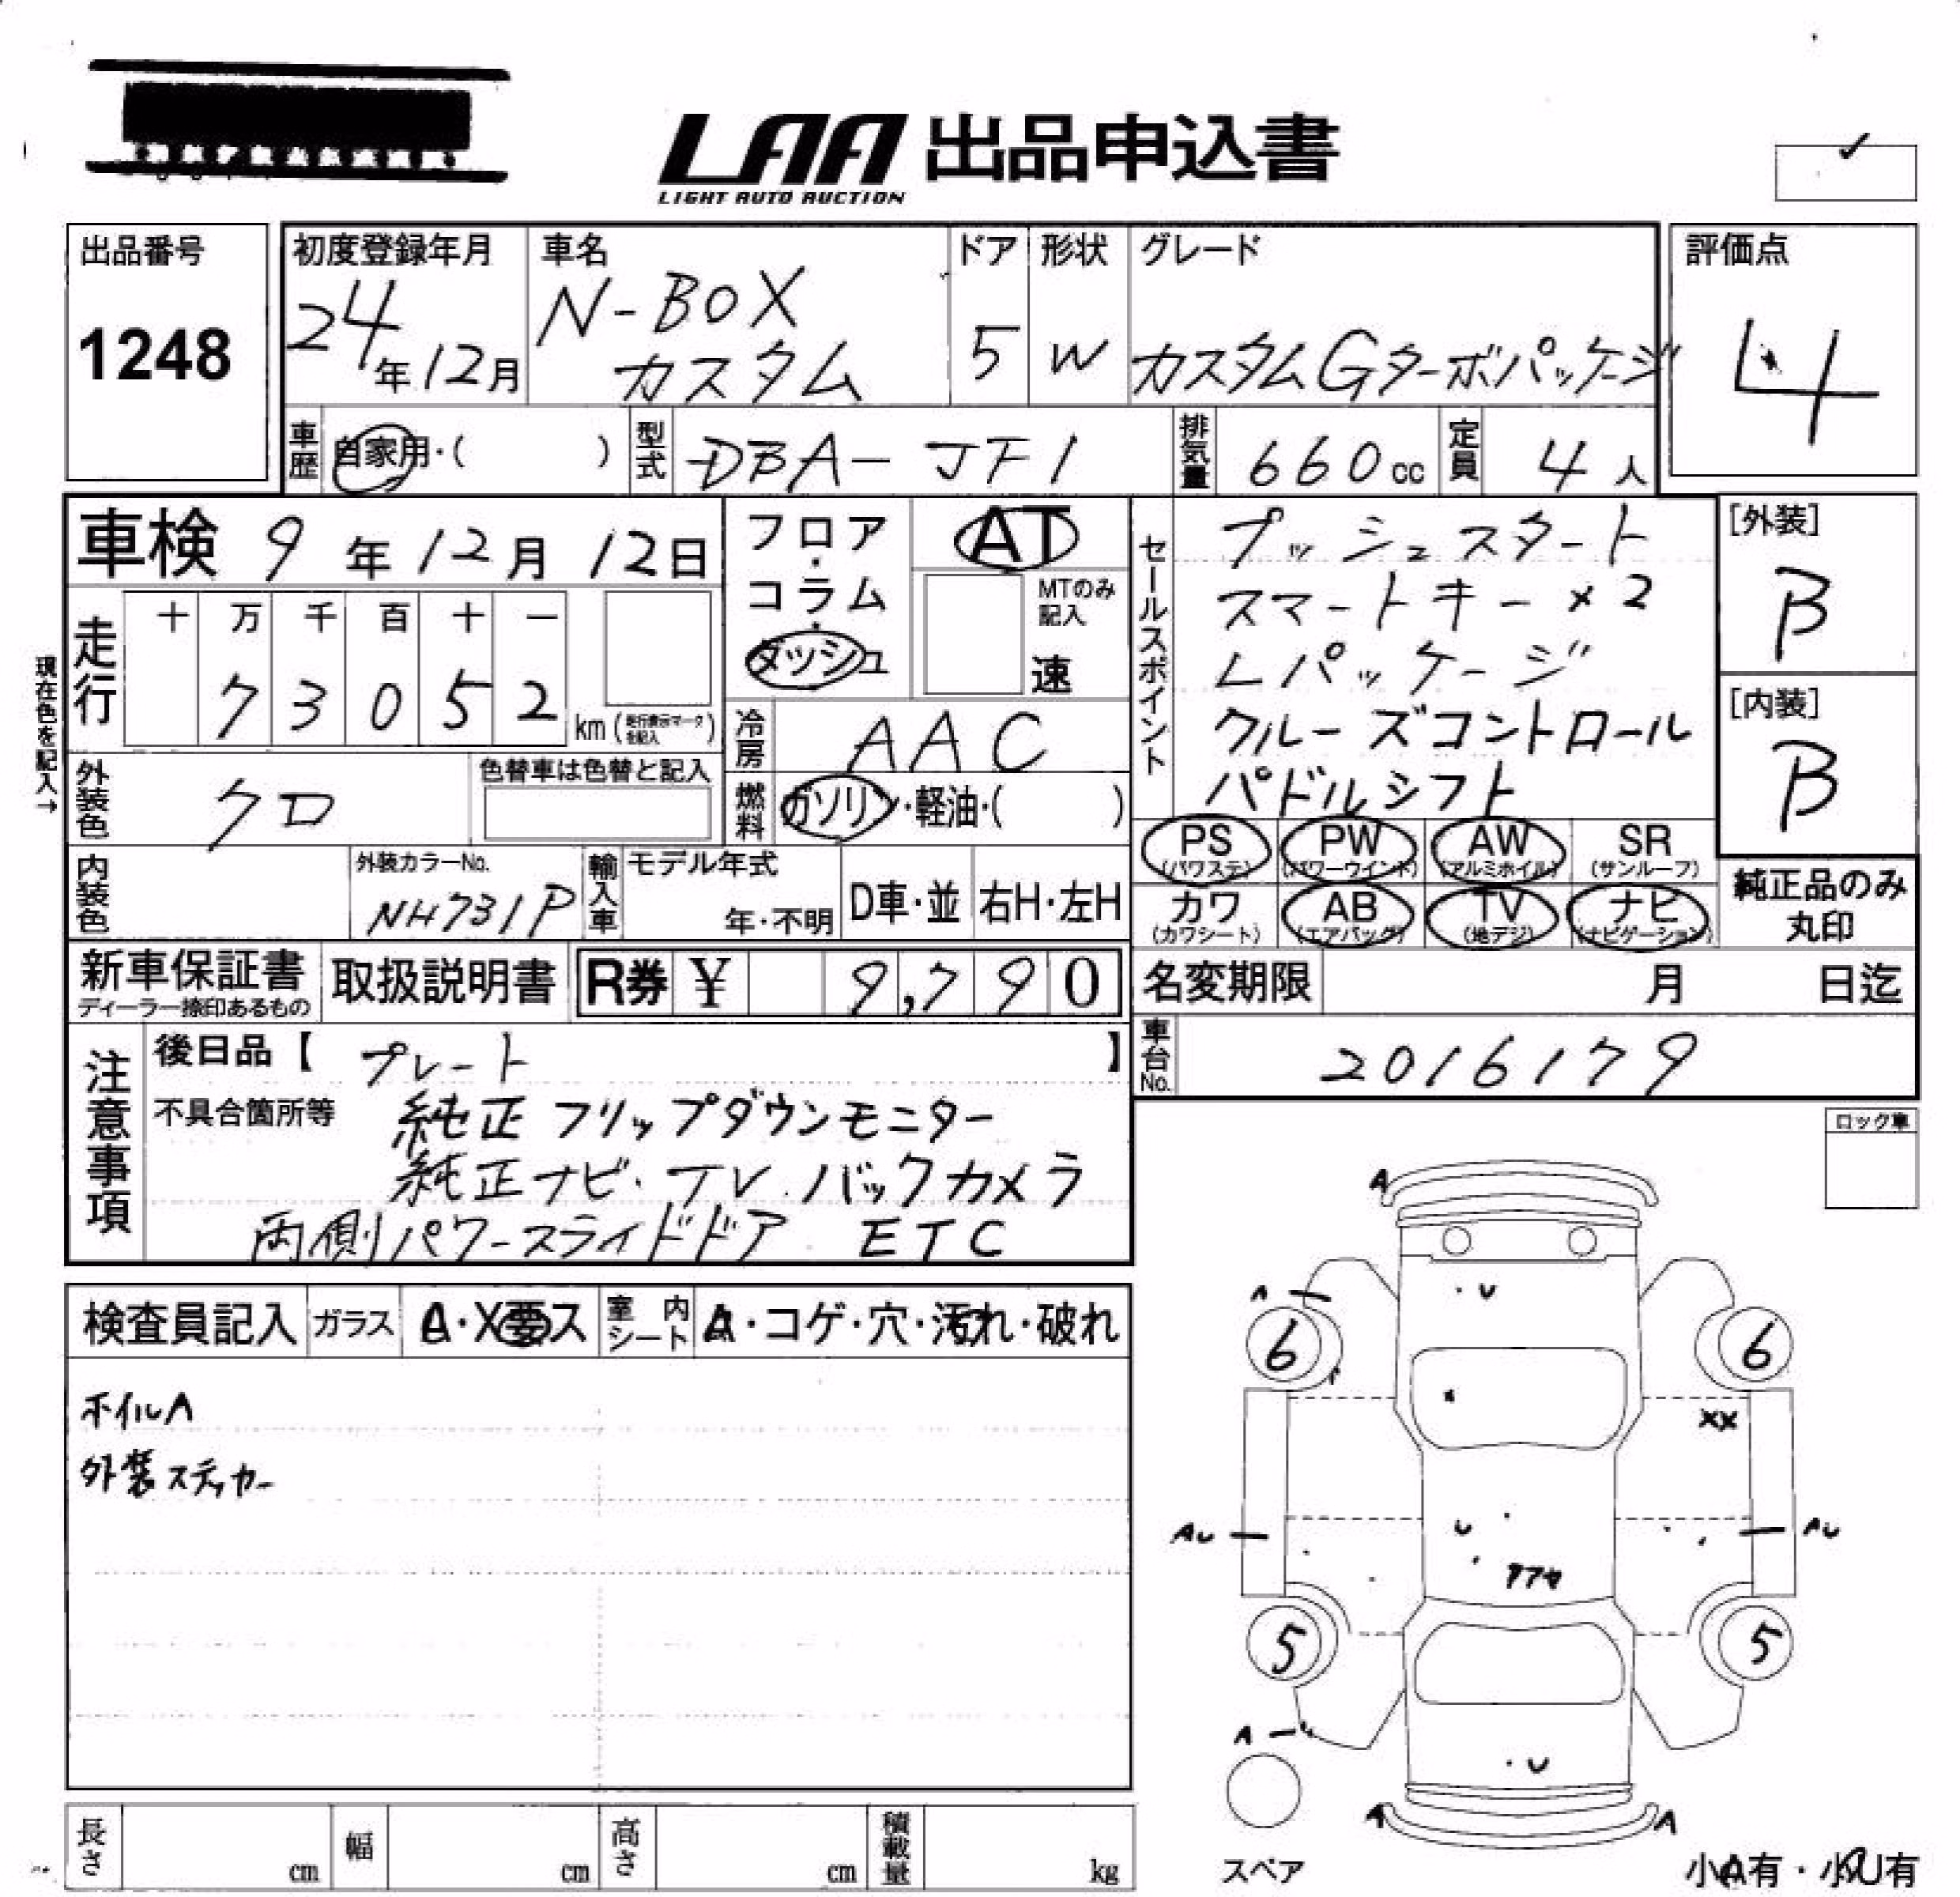 LAA 出品申込書
LIGHT AUTO AUCTION
出品番号
1248
初度登録年月
24年12月
車名
N-BOX
カスタム
ドア
5
形状
W
グレード
カスタムGターボパッケージ
評価点
4
車歴 自家用・( )
型式 DBA-JF1
排気量 660cc
定員 4人
車検 9年12月12日
現在色を記入→
走行
十 万 千 百 十 一
7 3 0 5 2 km (走行表示マークを記入)
フロア・コラム・ダッシュ
AT
MTのみ記入
速
冷房 AAC
燃料 ガソリン・軽油・( )
セールスポイント
プッシュスタート
スマートキー×2
Lパッケージ
クルーズコントロール
パドルシフト
[外装]
B
[内装]
B
外装色 クロ
色替車は色替と記入
内装色
外装カラーNo.
NH731P
輸入車
モデル年式
年・不明
D車・並
右H・左H
PS (パワステ)
PW (パワーウインド)
AW (アルミホイル)
SR (サンルーフ)
カワ (カワシート)
AB (エアバッグ)
TV (地デジ)
ナビ (ナビゲーション)
純正品のみ
丸印
新車保証書
ディーラー捺印あるもの
取扱説明書
R券 ¥ 9,790
名変期限 月 日迄
車台No. 2016179
注意事項
後日品【 プレート 】
不具合箇所等 純正フリップダウンモニター
純正ナビ・TV.バックカメラ
両側パワースライドドア ETC
ロック車
検査員記入 ガラス A・X要ス 室内シート A・コゲ・穴・汚れ・破れ
ホイルA
外装ステッカー
A
U
A
6
6
XX
U
AU
AU
5
5
A
U
A
A
スペア
小A有・小U有
長さ cm
幅 cm
高さ cm
積載量 kg